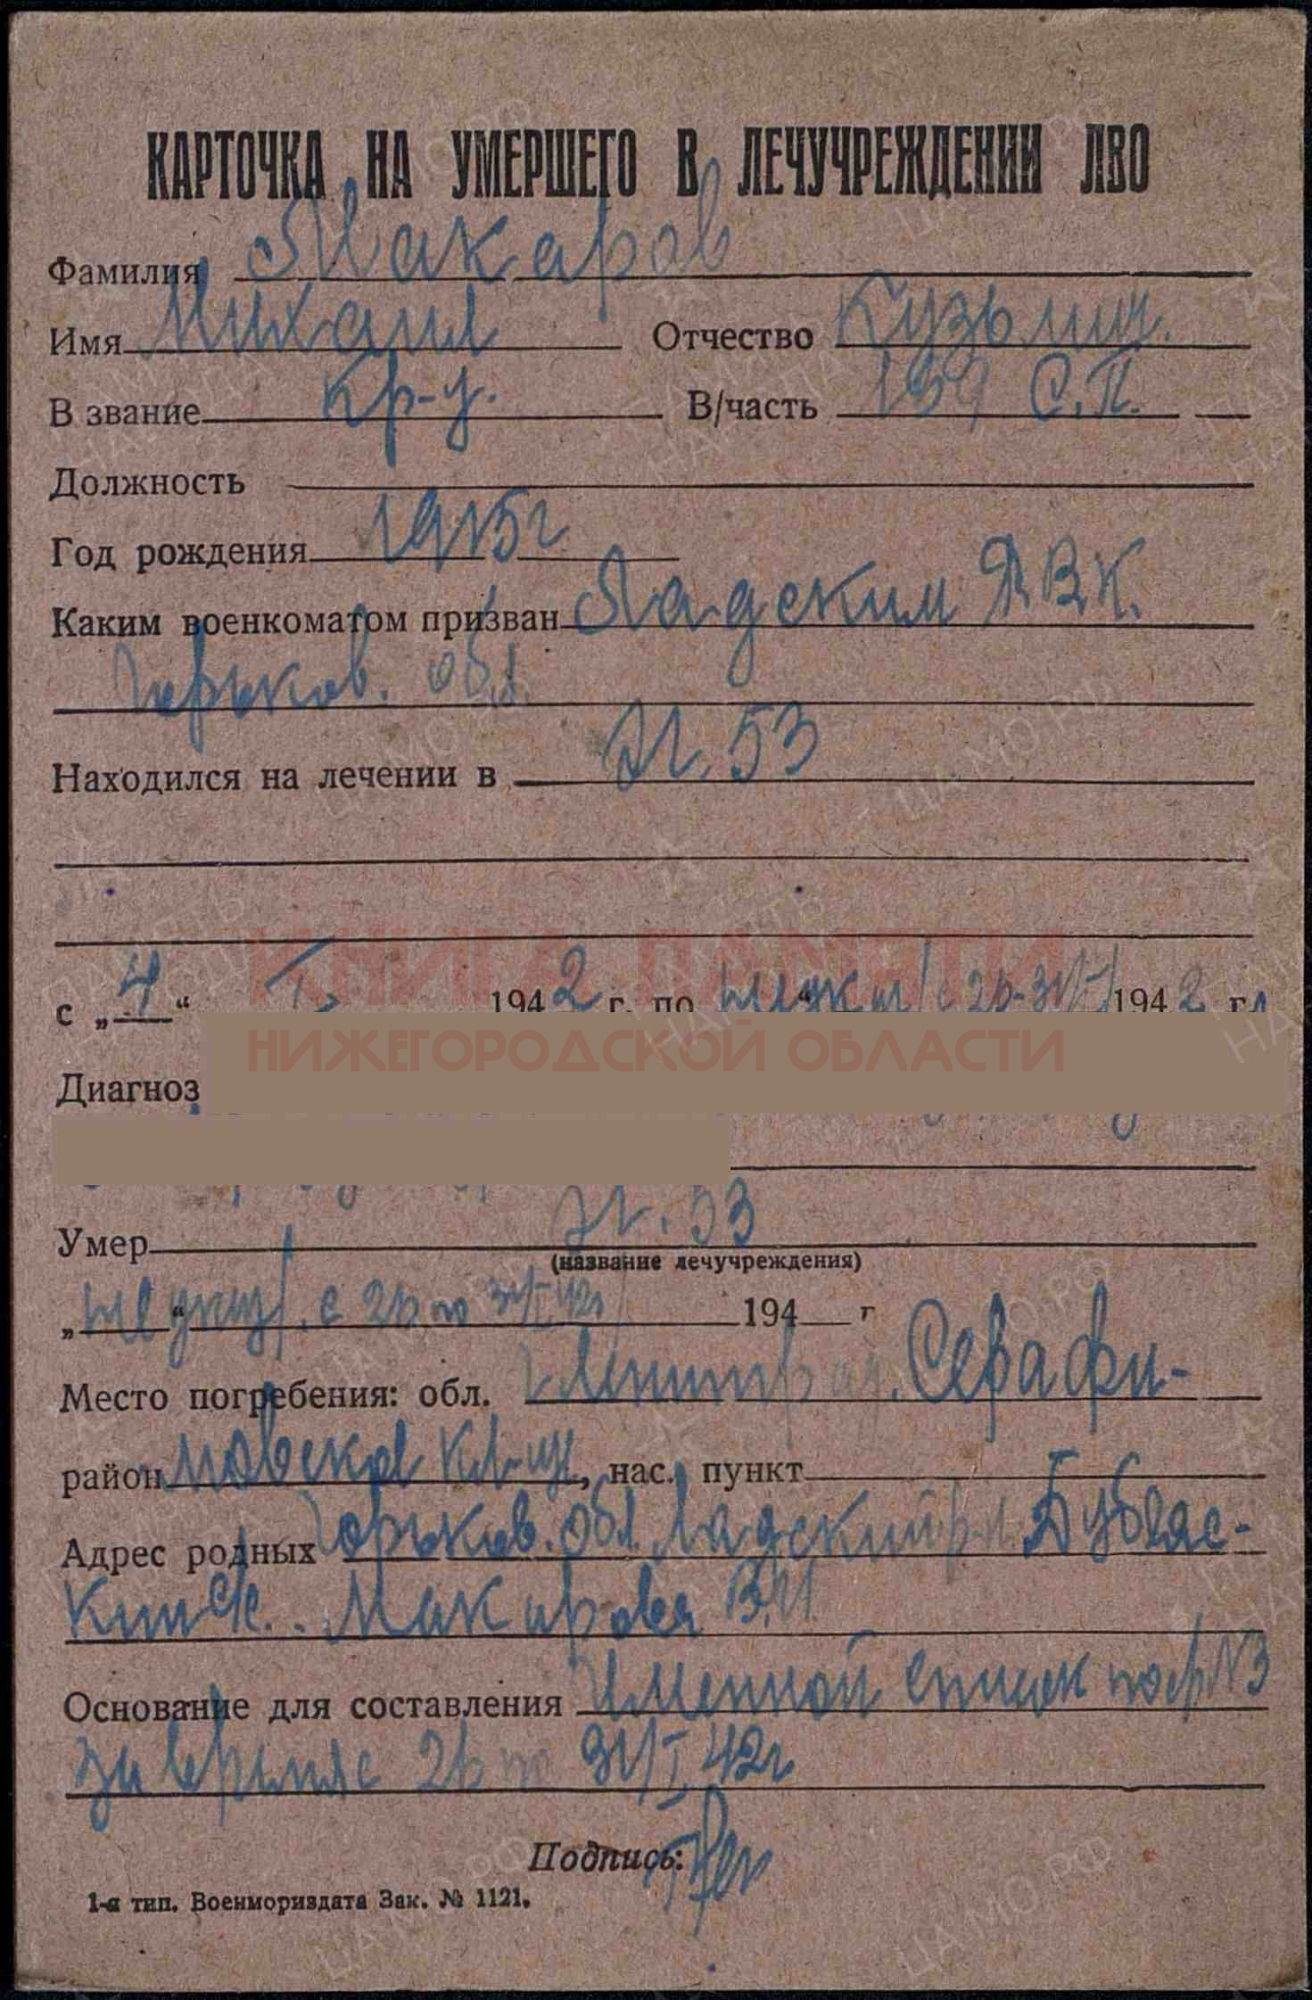 КАРТОЧКА НА УМЕРШЕГО В ЛЕЧУЧРЕЖДЕНИИ ЛВО
Фамилия Макаров
Имя Михаил Отчество Кузьмич.
В звание кр-ц. В/часть 159 С.П.
Должность
Год рождения 1915 г
Каким военкоматом призван Ладским РВК.
Горьков. обл.
Находился на лечении в Г. 53
КНИГА ПАМЯТИ
с „4“ I 1942 г. по 1942 г.
НИЖЕГОРОДСКОЙ ОБЛАСТИ
Диагноз
Умер Г. 53
(название лечучреждения)
„ “ с 26 по 31/I 42г 194 г
Место погребения: обл. Ленинград. Серафи-
район мовское кл-ще, нас. пункт
Адрес родных Горьков. обл. Ладский р-н.
Макарова В.И.
Основание для составления Именной список N3
за время с 26 по 31/I 42г
Подпись:
1-я тип. Военмориздата Зак. № 1121.